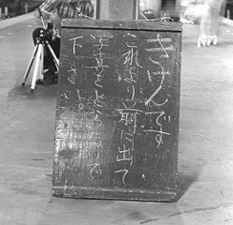 きけんです
これより前に出て
写真をとらないで
下さい。